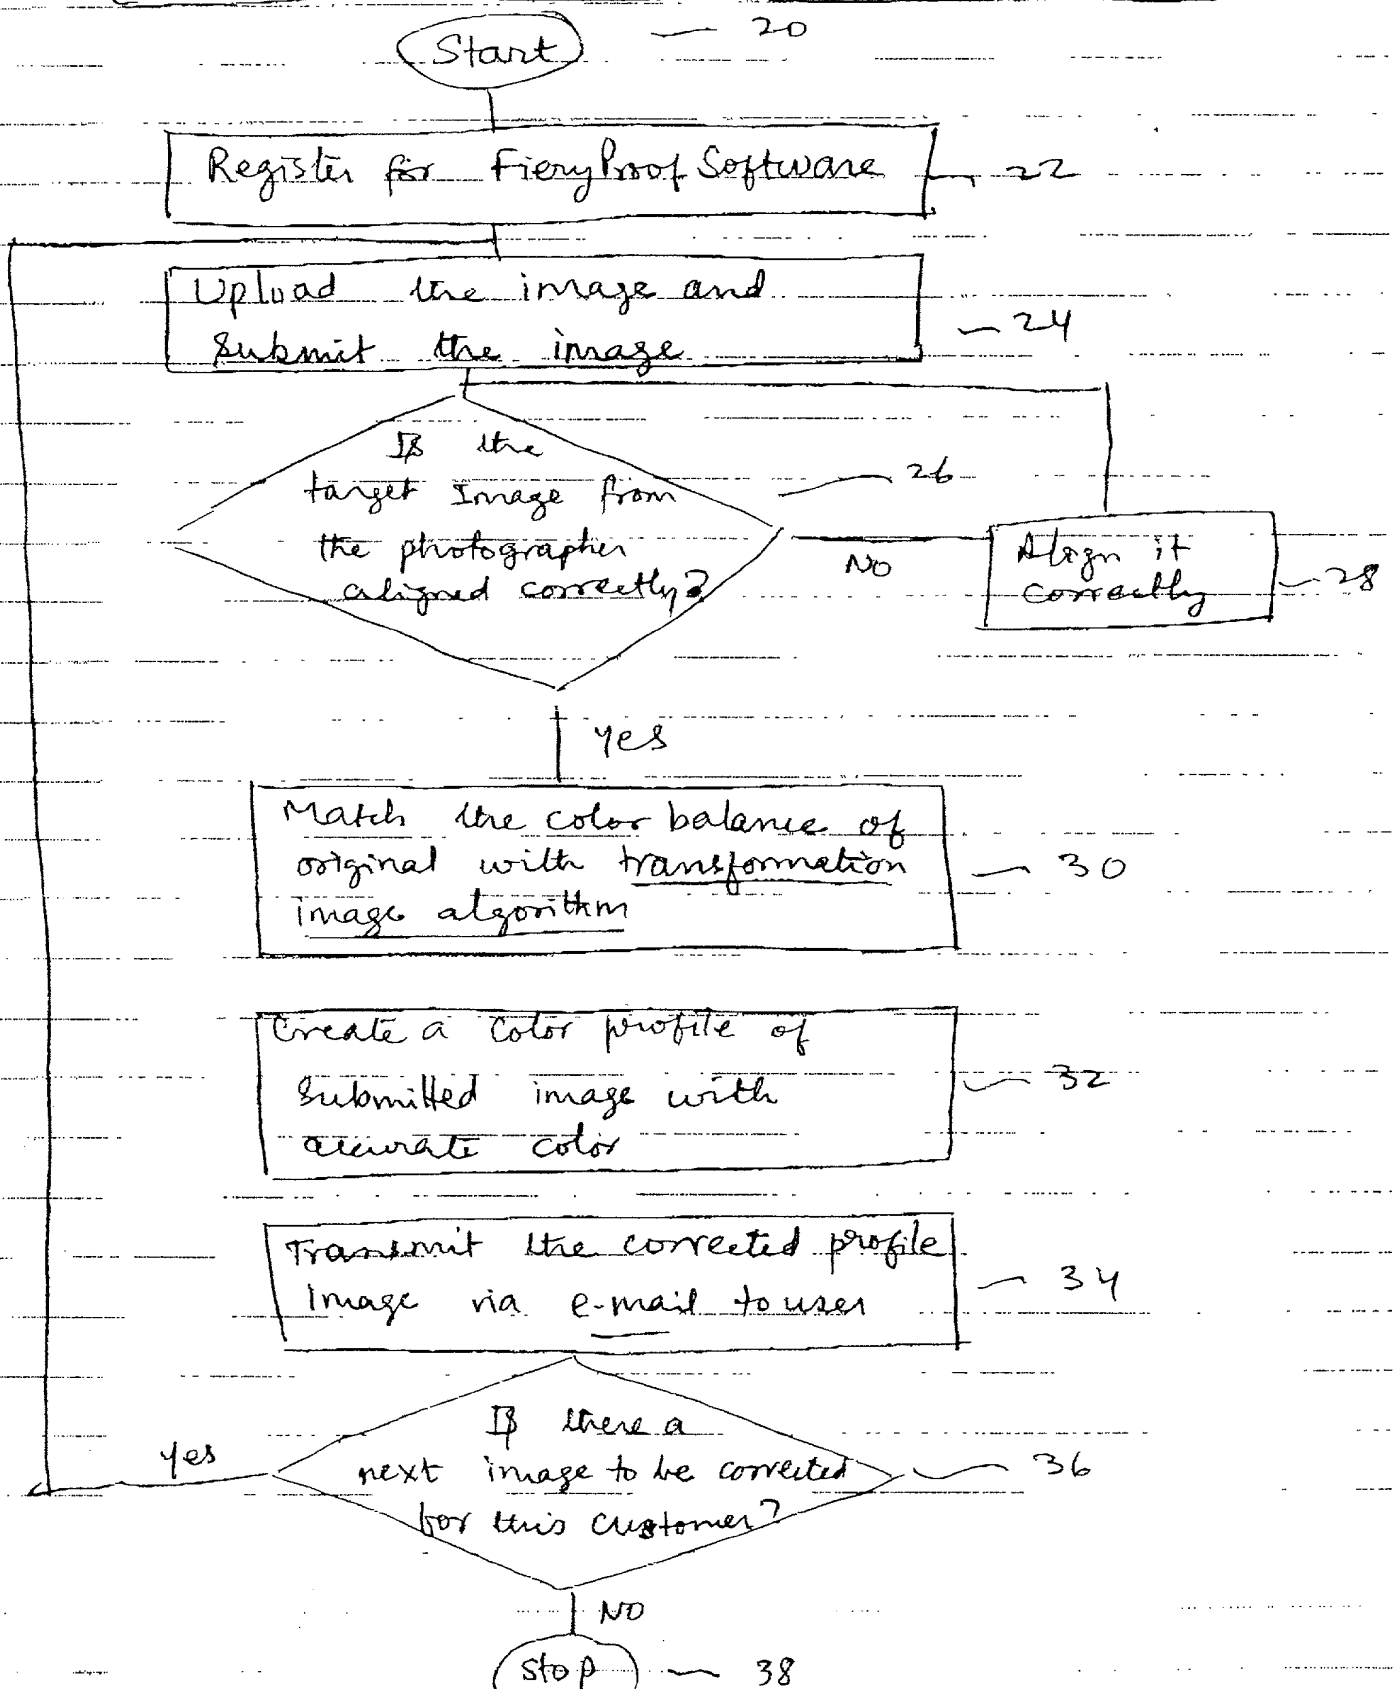 Start 20
Register for FieryProof Software 22
Upload the image and
Submit the image 24
Is the
target Image from 26
the photographer
aligned correctly?
NO
Align it
correctly 28
yes
Match the color balance of
original with transformation 30
image algorithm
Create a color profile of
Submitted image with 32
accurate color
Transmit the corrected profile
Image via e-mail to user 34
Is there a
next image to be corrected 36
for this customer?
yes
NO
Stop 38